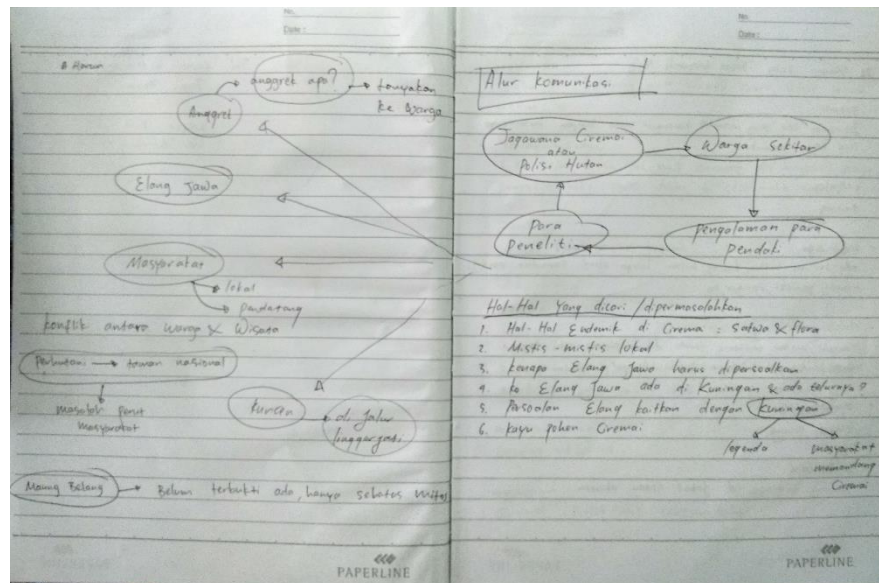 No.
Date :
anggrek apa?
tanyakan
ke warga
Anggrek
Elang Jawa
Masyarakat
lokal
pendatang
konflik antara warga & Wisata
Perhutani
taman nasional
masalah perut
masyarakat
Kurcin
di Jalur
linggarjati
Maung Belang
Belum terbukti ada, hanya sebatas mitos
PAPERLINE
No.
Date :
Alur komunikasi
Jagawana Ciremai
atau
Polisi Hutan
Warga Sekitar
Para
peneliti
pengalaman para
pendaki
Hal-Hal Yang dicari / dipermasalahkan
1. Hal-Hal Endemik di Ciremai : Satwa & flora
2. Mistis-mistis lokal
3. kenapa Elang Jawa harus dipersoalkan
4. ko Elang Jawa ada di Kuningan & ada berapa?
5. Persoalan Elang kaitkan dengan kuningan
6. kayu pohon Ciremai
legenda
masyarakat
memandang
Ciremai
PAPERLINE